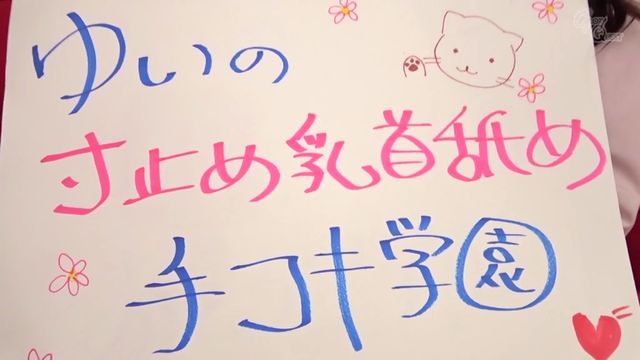 ゆいの
寸止め乳首舐め
手コキ学園